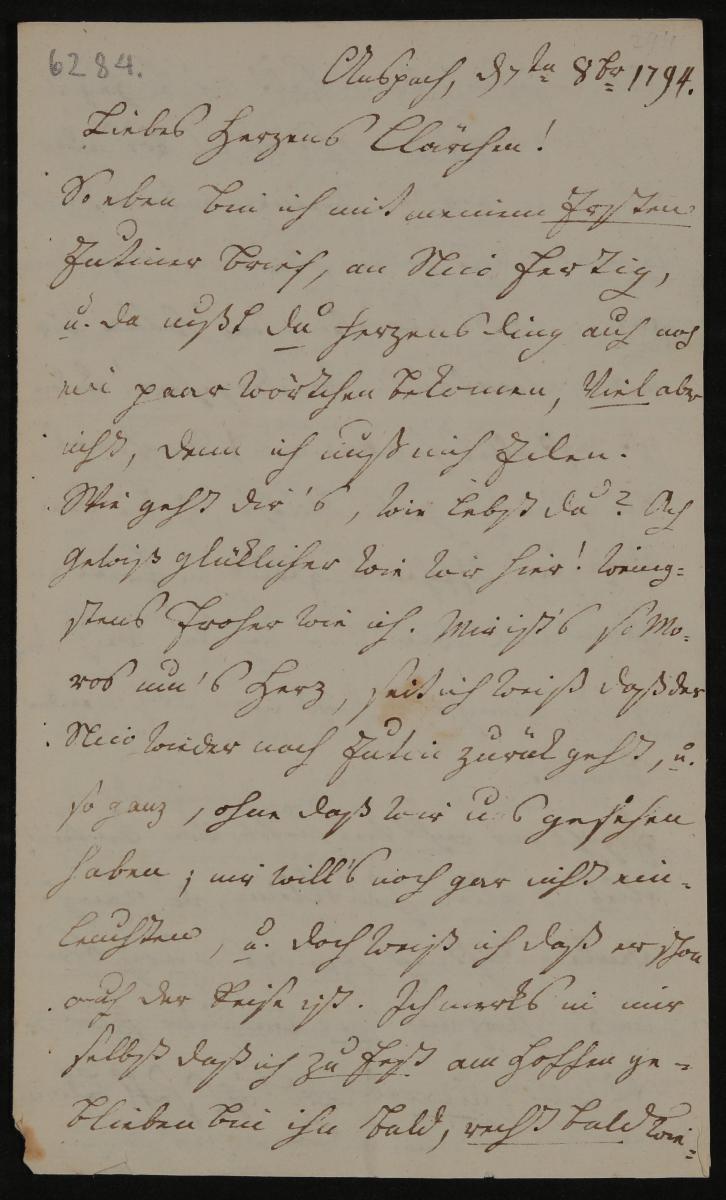 6284.
Anspach, d 7tn 8br 1794.
Liebes Herzens Clärchen!
So eben bin ich mit meinem Ersten
Eutiner Brief, an Nico fertig,
u. da mußt du herzensding auch noch
ein paar Wörtchen bekomen, Viel aber
nicht, denn ich muß mich Eilen.
Wie geht dir's, wie lebst du? Ach
gewiß glüklicher wie wir hier! wenig-
stens froher wie ich. Mir ist's so Mo-
ros um's Herz, seit ich weiß daß der
Nico wieder nach Eutin zurük geht, u.
so ganz, ohne daß wir uns gesehen
haben; mir will's noch gar nicht ein-
leuchten, u. doch weiß ich daß er schon
auf der Reise ist. Ich merks in mir
selbst daß ich zu fest am Hoffen ge-
blieben bin ihn bald, recht bald wie-